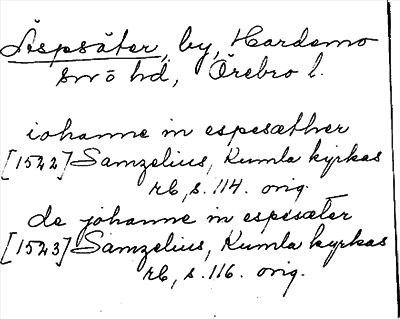 Äspsäter, by, Hardemo
sn ö hd, Örebro l.
iohanne in espesæther
[1542] Samzelius, Kumla kyrkas
rb, s. 114. orig.
de johanne in espesæter
[1543] Samzelius, Kumla kyrkas
rb, s. 116. orig.